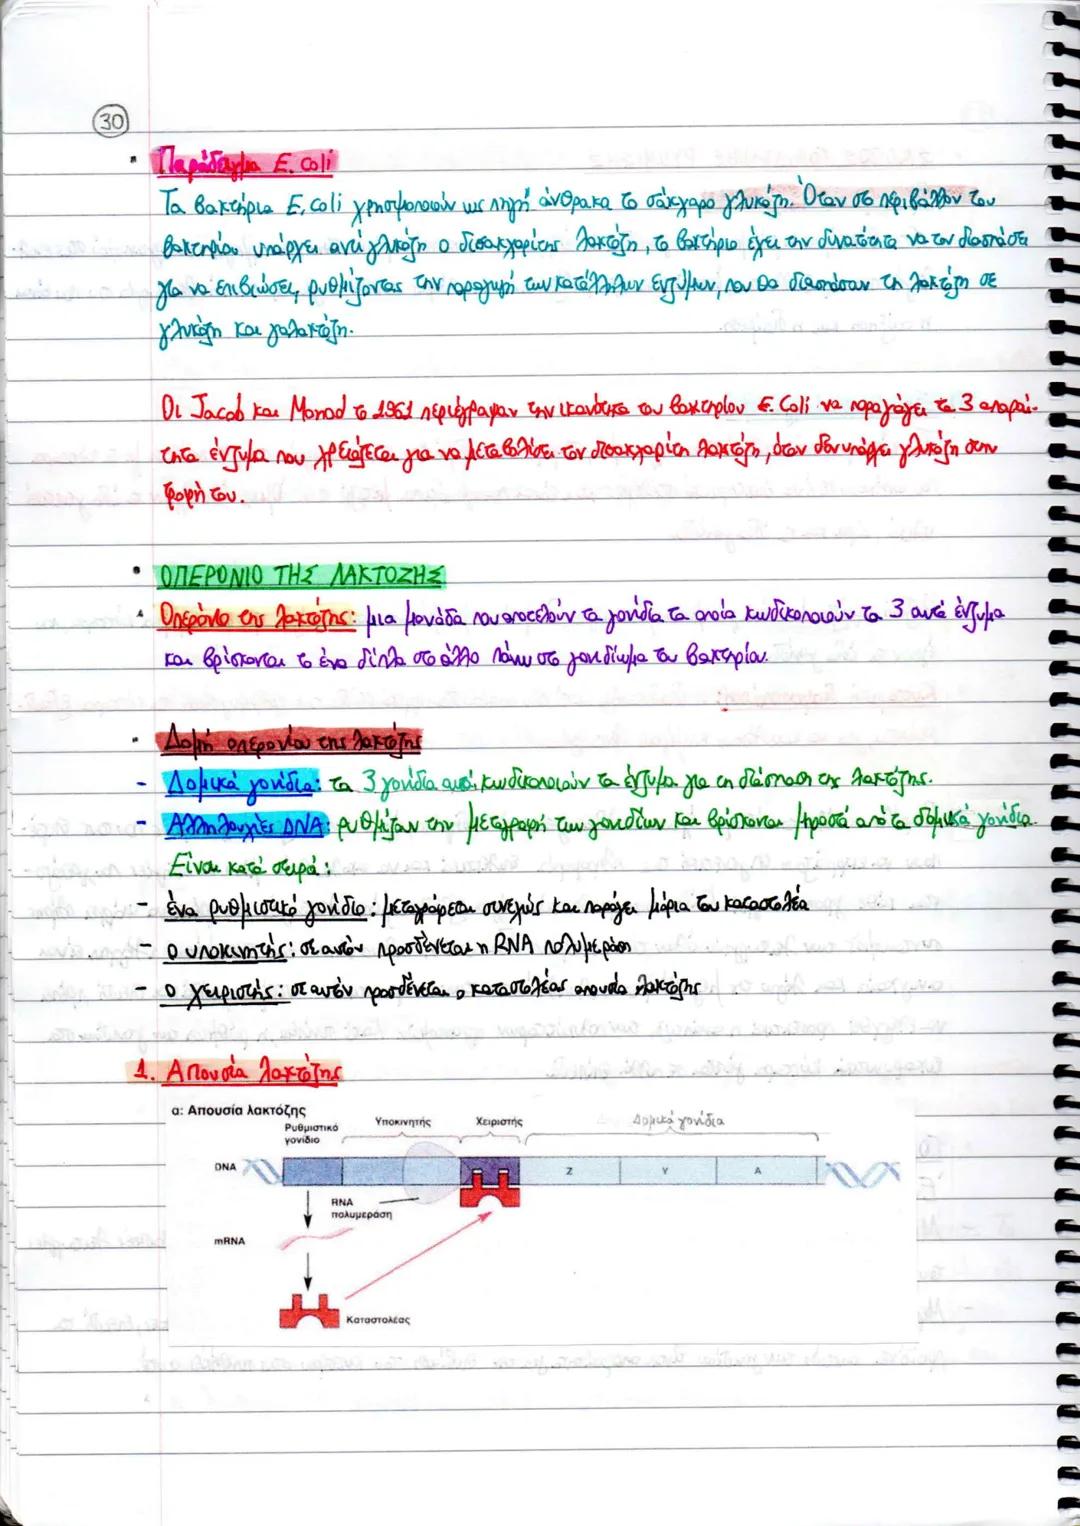 30
Παράδειγμα E. coli
Τα βακτήρια E. coli χρησιμοποιούν ως πηγή άνθρακα το σάκχαρο γλυκόζη. Όταν στο περιβάλλον του
βακτηρίου υπάρχει αντί γλυκόζη ο δισακχαρίτης λακτόζη, το βακτήριο έχει την δυνατότητα να τον διασπάσει
για να επιβιώσει, ρυθμίζοντας την παραγωγή των κατάλληλων ενζύμων, που θα διασπάσουν τη λακτόζη σε
γλυκόζη και γαλακτόζη.
Οι Jacob και Monod το 1961 περιέγραψαν την ικανότητα του βακτηρίου E. Coli να παραγάγει τα 3 απαραί-
τητα ένζυμα που χρειάζεται για να μεταβολίσει τον δισακχαρίτη λακτόζη, όταν δεν υπάρχει γλυκόζη στην
τροφή του.
ΟΠΕΡΟΝΙΟ ΤΗΣ ΛΑΚΤΟΖΗΣ
Οπερόνιο της λακτόζης: μια μονάδα που αποτελούν τα γονίδια τα οποία κωδικοποιούν τα 3 αυτά ένζυμα
και βρίσκονται το ένα δίπλα στο άλλο πάνω στο γονιδίωμα του βακτηρίου.
Δομή οπερονίου της λακτόζης
- Δομικά γονίδια: τα 3 γονίδια αυτά κωδικοποιούν τα ένζυμα για τη διάσπαση της λακτόζης.
- Αλληλουχίες DNA: ρυθμίζουν την μεταγραφή των γονιδίων και βρίσκονται μπροστά από τα δομικά γονίδια.
Είναι κατά σειρά:
- ένα ρυθμιστικό γονίδιο: μεταγράφεται συνεχώς και παράγει μόρια του καταστολέα
- ο υποκινητής: σε αυτόν προσδένεται η RNA πολυμεράση
- ο χειριστής: σε αυτόν προσδένεται ο καταστολέας απουσία λακτόζης
1. Απουσία λακτόζης
α: Απουσία λακτόζης
Ρυθμιστικό
γονίδιο
Υποκινητής
Χειριστής
Δομικά γονίδια
DNA
Z
Y
A
RNA
πολυμεράση
mRNA
Καταστολέας